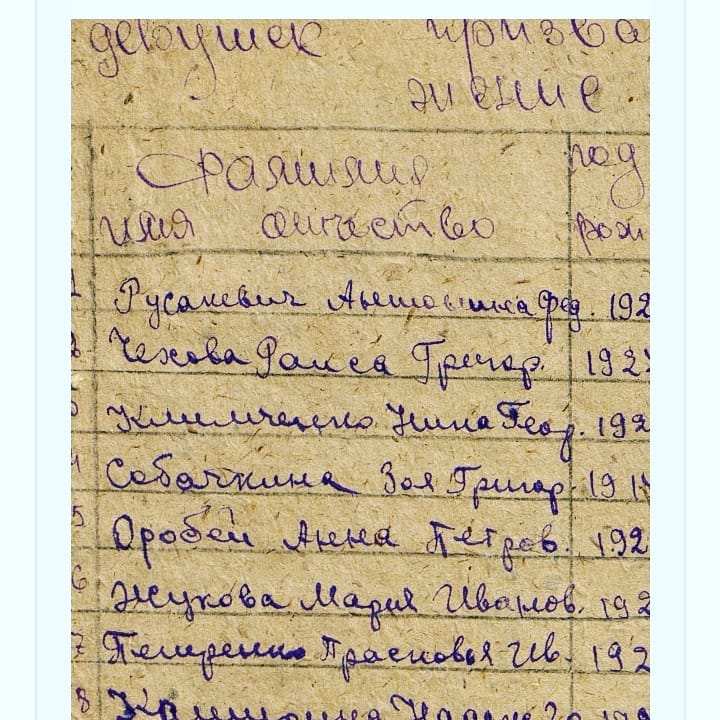 девушек призва
жение
Фамилия год
имя отчество рож
1 Русакевич Антонина Фед. 192
2 Чехова Раиса Григор. 192
3 Климченко Нина Геор. 192
4 Собачкина Зоя Григор. 19
5 Оробей Анна Петров. 192
6 Жукова Мария Иванов. 192
7 Петренко Прасковья Ив. 192
8